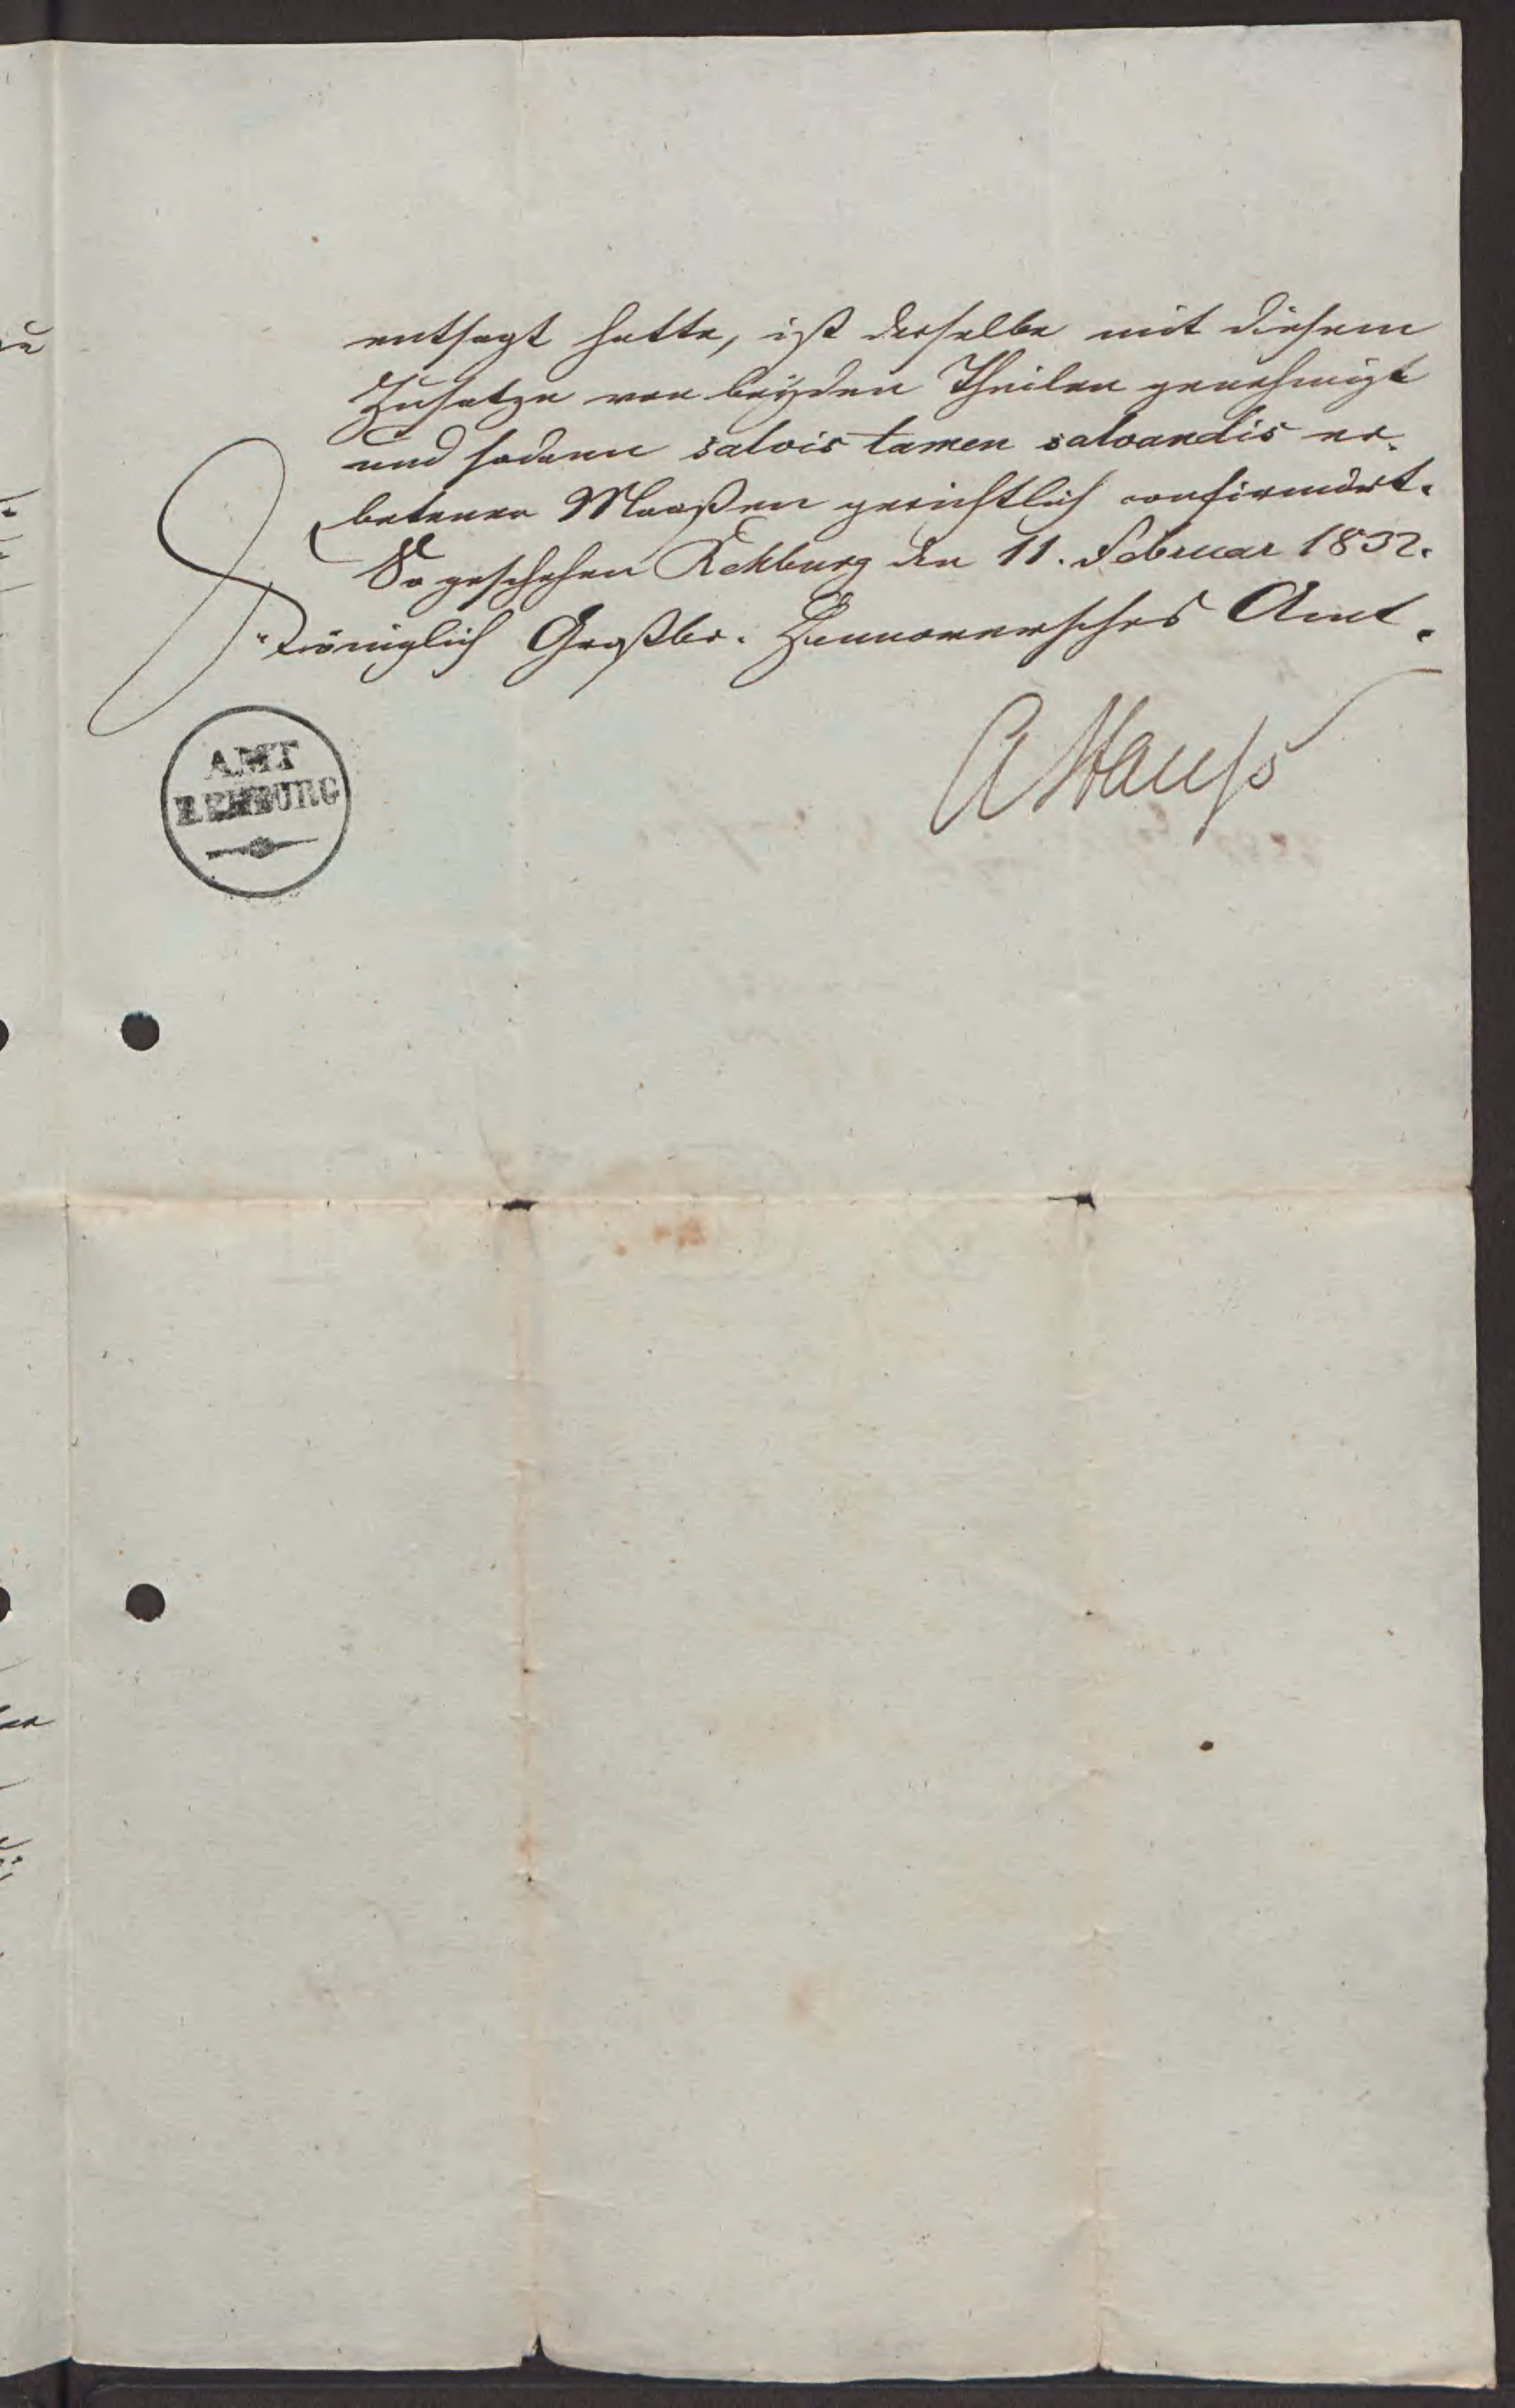 entsagt hatte, ist derselbe mit diesem
Zusatze von beyden Theilen genehmigt
und sodann salvis tamen salvandis er-
betener Maaßen gerichtlich confirmirt.
So geschehen Rehburg den 11. Februar 1832.
Königlich Großbr. Hannoversches Amt.
AMT
REHBURG